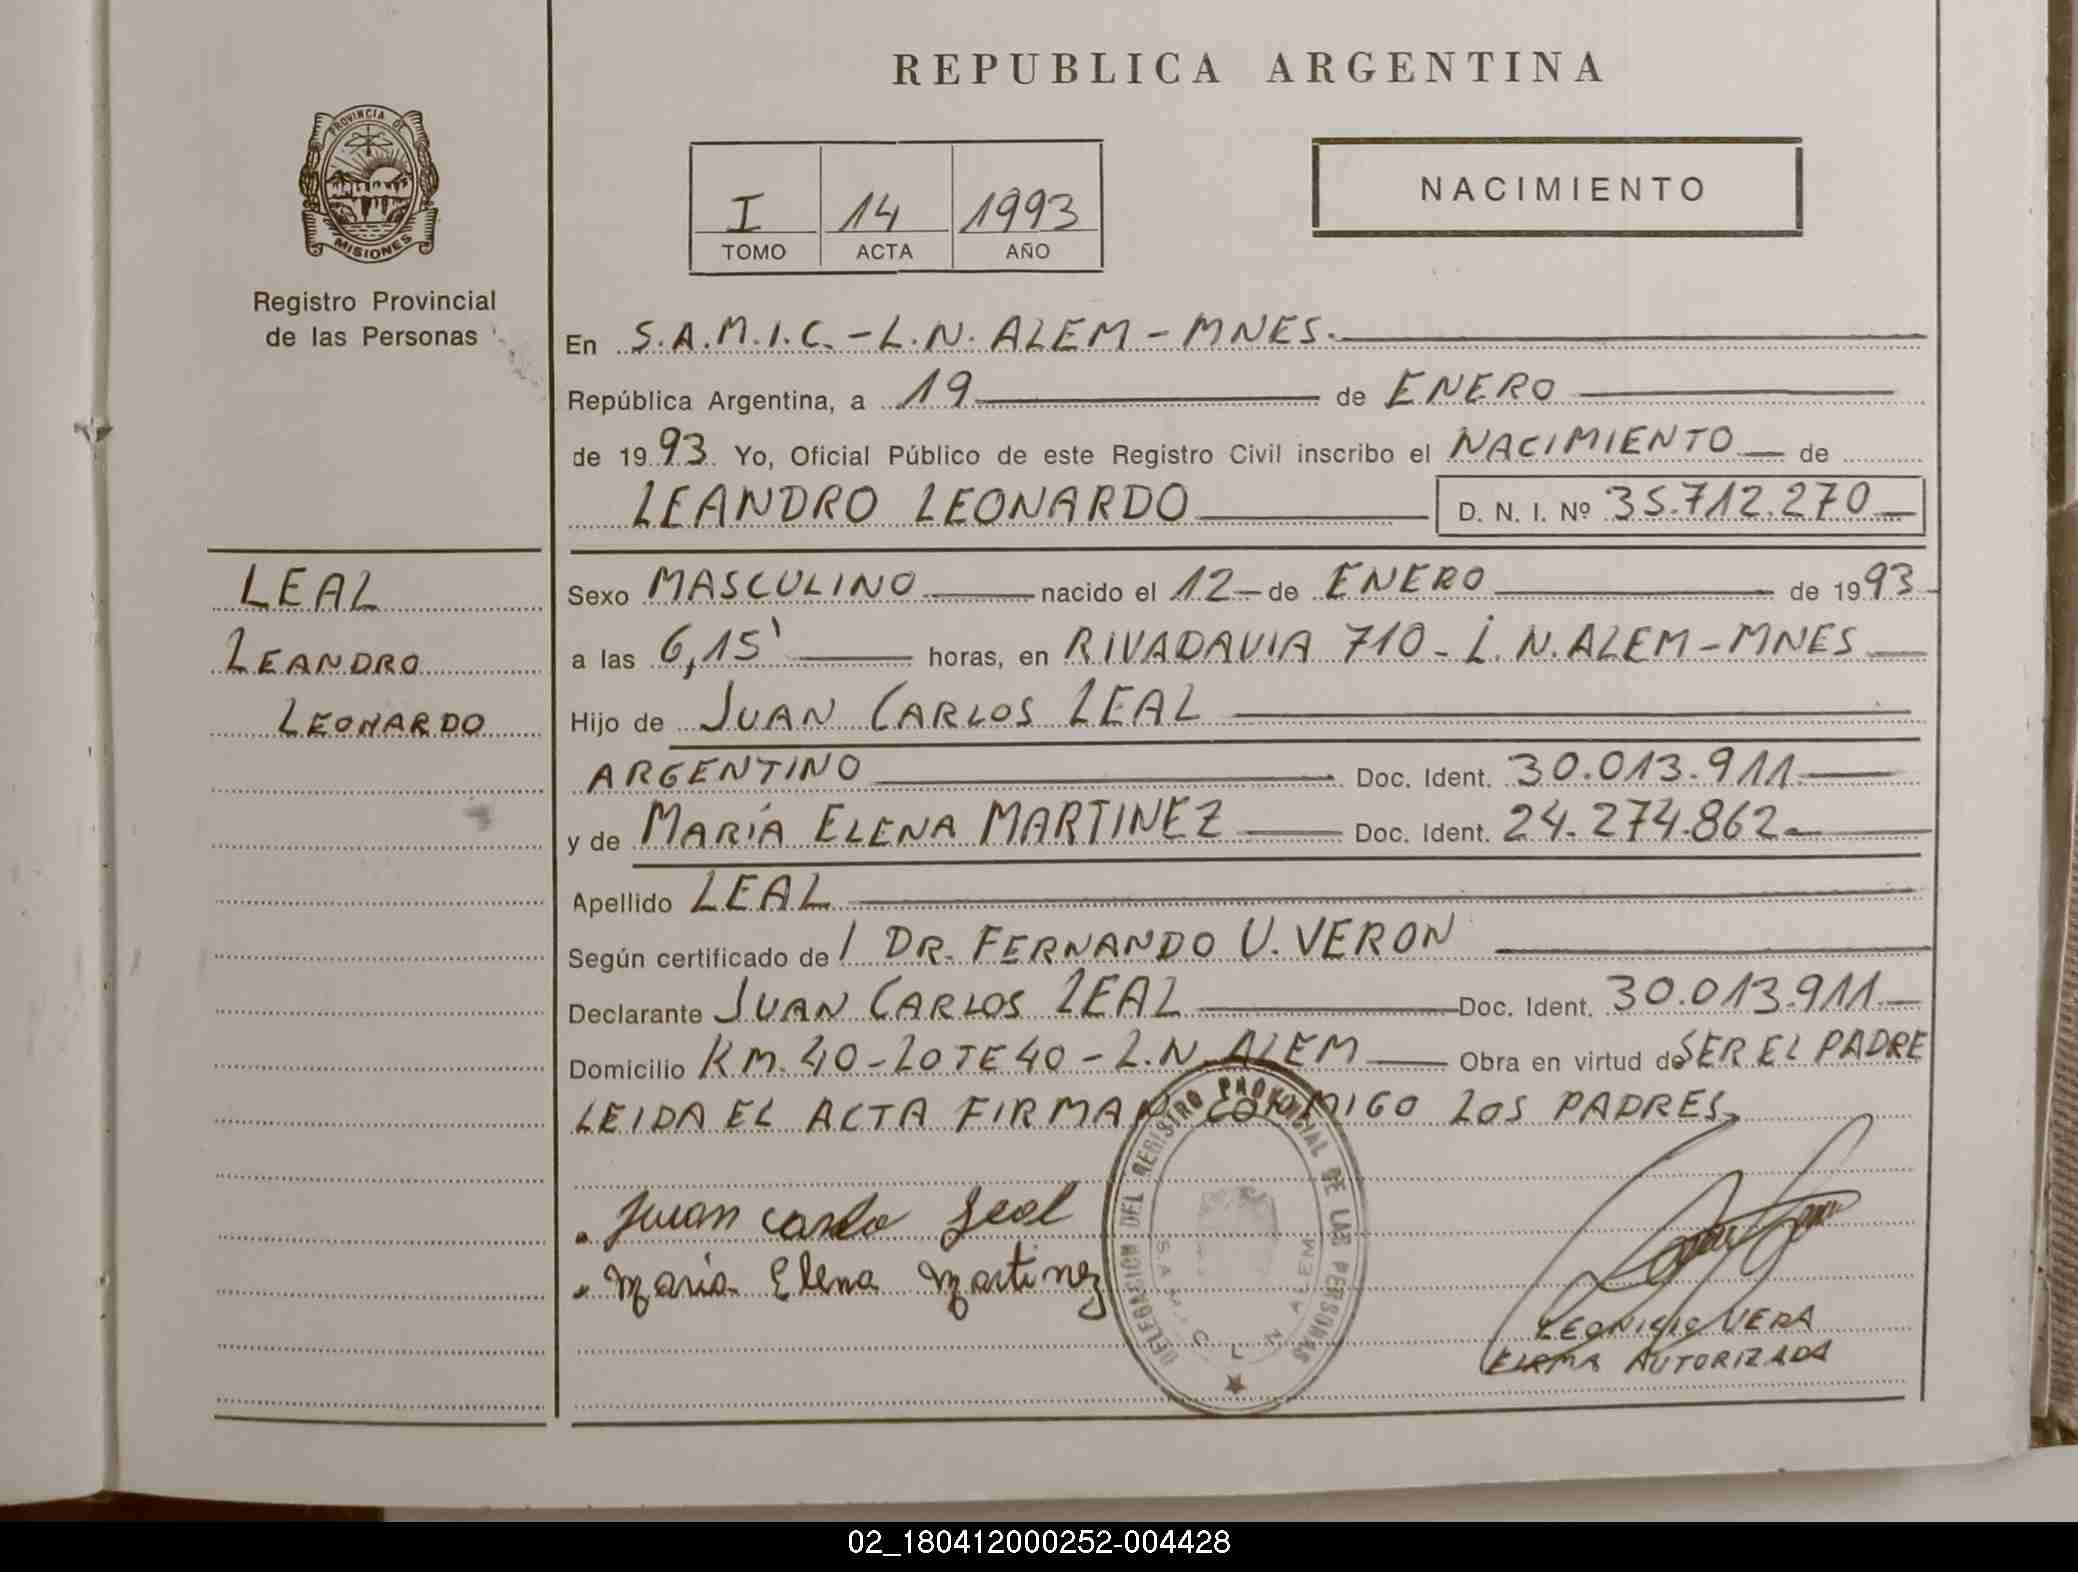 REPUBLICA ARGENTINA
PROVINCIA DE
MISIONES
Registro Provincial
de las Personas
I 14 1993
TOMO ACTA AÑO
NACIMIENTO
En S.A.M.I.C. - L.N. ALEM - MNES.
República Argentina, a 19 de ENERO
de 1993. Yo, Oficial Público de este Registro Civil inscribo el NACIMIENTO de
LEANDRO LEONARDO D. N. I. Nº 35.712.270
LEAL
LEANDRO
LEONARDO
Sexo MASCULINO nacido el 12 de ENERO de 1993
a las 6,15' horas, en RIVADAVIA 710 - L. N. ALEM - MNES
Hijo de JUAN CARLOS LEAL
ARGENTINO Doc. Ident. 30.013.911
y de MARÍA ELENA MARTINEZ Doc. Ident. 24.274.862
Apellido LEAL
Según certificado de DR. FERNANDO U. VERON
Declarante JUAN CARLOS LEAL Doc. Ident. 30.013.911
Domicilio KM. 40 - LOTE 40 - L.N. ALEM Obra en virtud de SER EL PADRE
LEIDA EL ACTA FIRMAN CONMIGO LOS PADRES
Juan Carlo Leal
Maria Elena Martinez
DELEGACION DEL REGISTRO PROVINCIAL DE LAS PERSONAS
L. N. ALEM
LEONICIO VERA
FIRMA AUTORIZADA
02_180412000252-004428